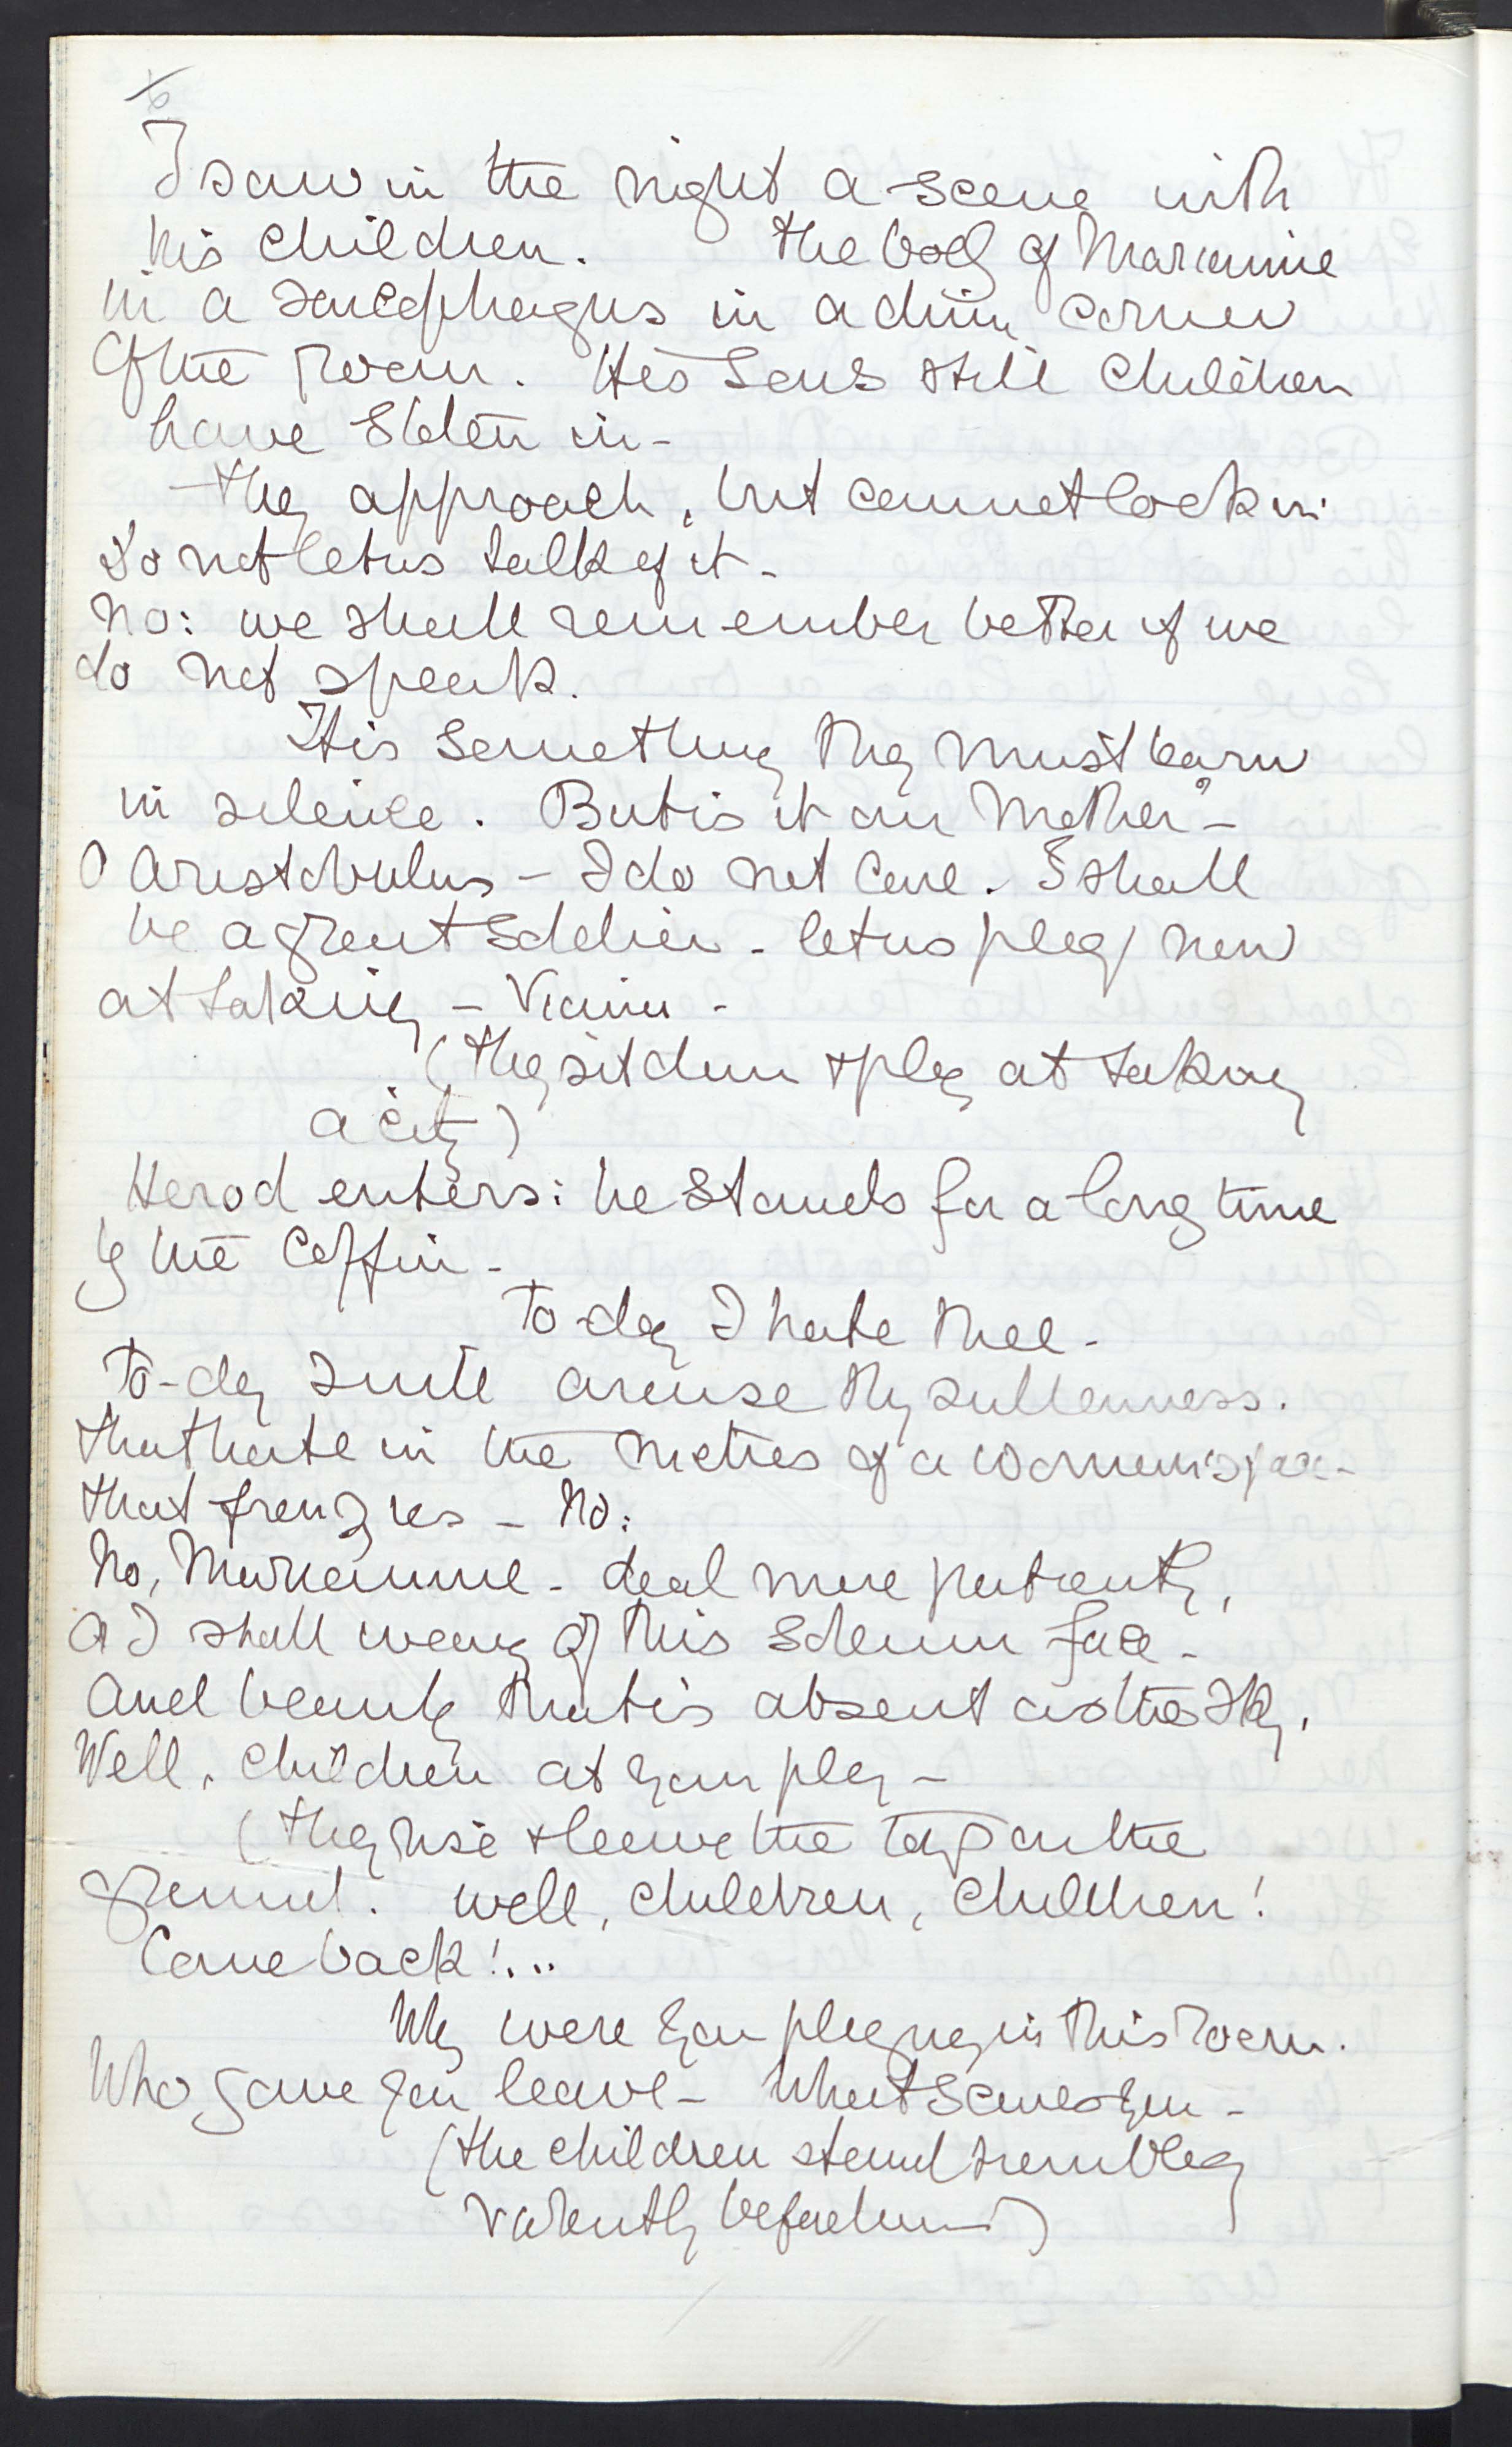 I saw in the night a scene with
his children. The body of Mariamne
in a sarcophagus in a dim corner
of the room. His sons still children
have stolen in -
They approach, but cannot look in:
Do not let us talk of it -
No: we shall remember better if we
do not speak.
It is something they must learn
in silence. But is it our Mother -
O Aristobulus - I do not care. I shall
be a great soldier - let us play now
at taking -
(they sit down & play at taking
a city)
Herod enters: he stands for a long time
by the coffin -
To-day I hate thee -
To-day I will arouse thy sullenness.
that hate in the of a woman's
that frenzies - No:
No, Mariamne - deal more patiently,
or I shall weary of this solemn face -
And beauty that is absent as the sky.
Well, children at your play -
(they rise & leave the toys on the
ground. Well, children, children!
Come back!...
Why were you playing in this room.
Who gave you leave - What scares you -
(the children stand trembling
violently before him)